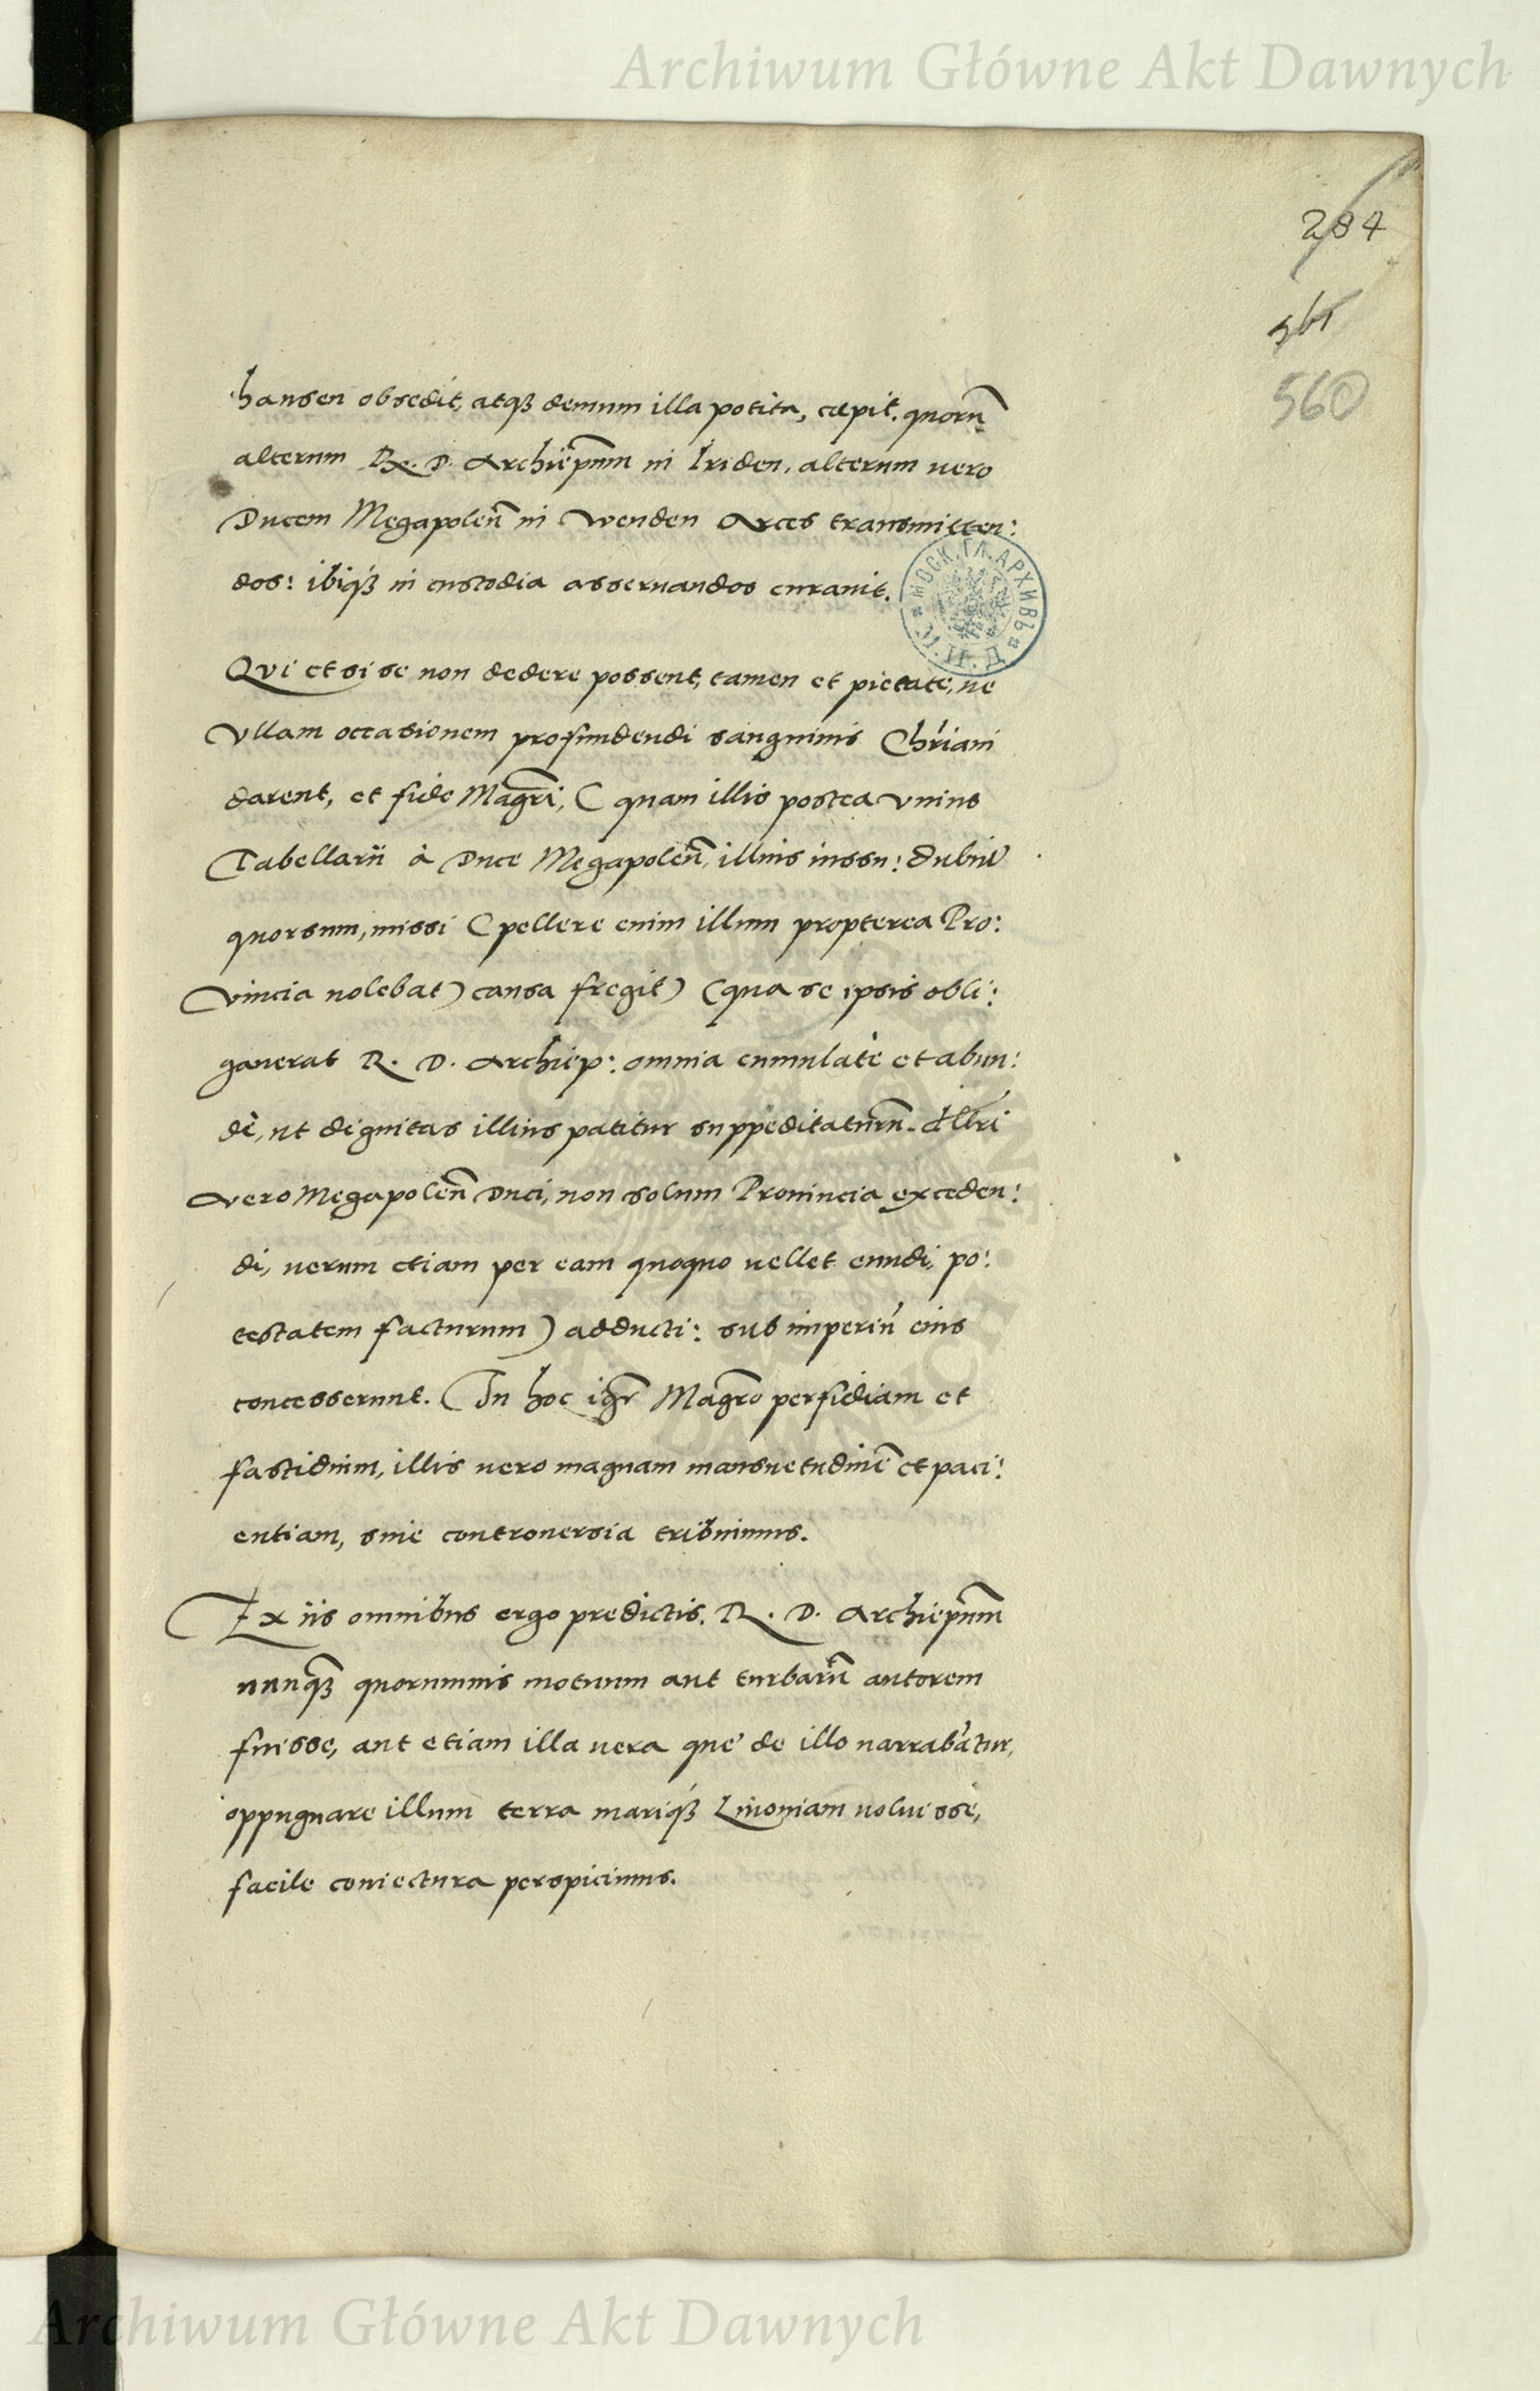 Archiwum Główne Akt Dawnych
284
561
560
hansen obsedit, atqȝ demum illa potita, cœpit. quorū
alterum R. D. Archiep̄um in Triden, alterum vero
Ducem Megapolen̄ in Wenden Arces transmitten:
dos: ibiqȝ in custodia asseruandos curauit.
МОСК. ГЛ. АРХИВЪ
Qvi etsi se non dedere possent, tamen et pietate, ne
Vllam occasionem profundendi sanguinis Chr̄iani
darent, et fide Magr̄i, (quam illis postea vnius
Tabellarii à Duce Megapolen̄, illius iussu: dubiū
quorsum, missi (pellere enim illum propterea Pro:
Vincia nolebat) causa fregit) (qua se ipsis obli:
gauerat R. D. Archiep: omnia cumulatè et abun:
dè, ut dignitas illius patitur suppeditaturū. Alteri
vero Megapolen̄ Duci, non solum Prouincia exceden:
di, uerum etiam per eam quoquo uellet eundi, po:
testatem facturum) adducti: sub imperiū eius
concesserunt. In hoc igr̄ Magr̄o perfidiam et
fastidium, illis uero magnam mansuetudinē et paci:
entiam, sine controuersia tribuimus.
Ex iis omnibus ergo predictis. R. D. Archiep̄um
nunqȝ quorumuis motuum aut turbarū autorem
fuisse, aut etiam illa vera que de illo narrabātur,
oppugnare illum terra mariqȝ Liuoniam uoluisse,
facile coniectura perspicimus.
Archiwum Główne Akt Dawnych